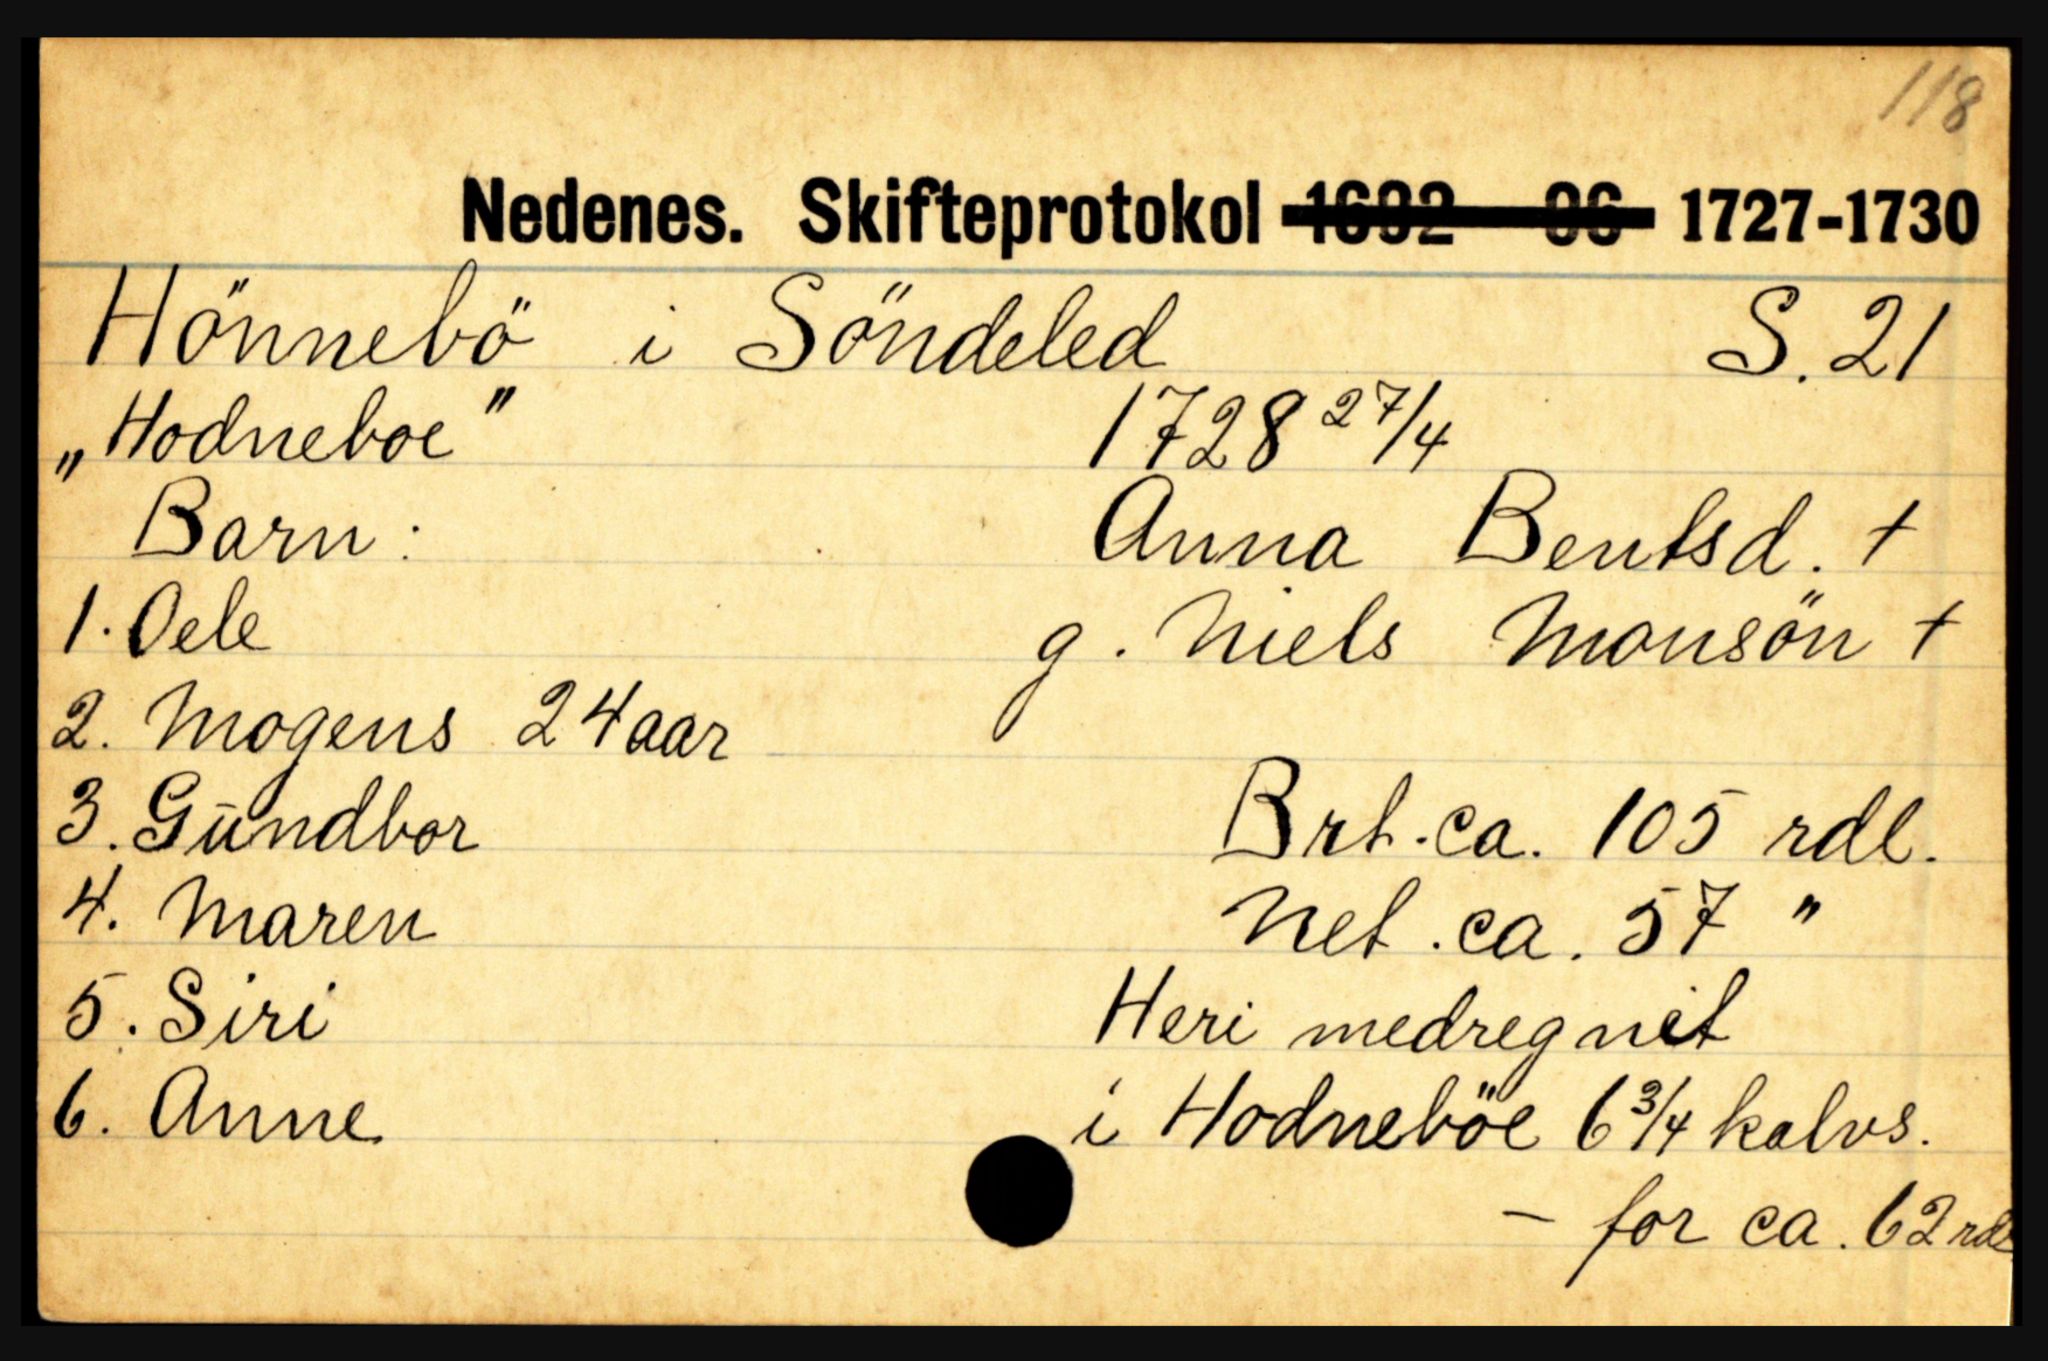 118
Nedenes. Skifteprotokol 1692-96 1727-1730
Hönnebö i Söndeled S. 21
„Hodneboe" 1728 27/4
Barn: Anna Bentsd. +
1. Oele g. Niels Monsön +
2. Mogens 24 aar
3. Gūndbor Brt. ca. 105 rdl.
4. Maren Net. ca. 57 "
5. Siri Heri medregnet
6. Anne i Hodneböe 6 3/4 kalvs.
- for ca. 62 rdl